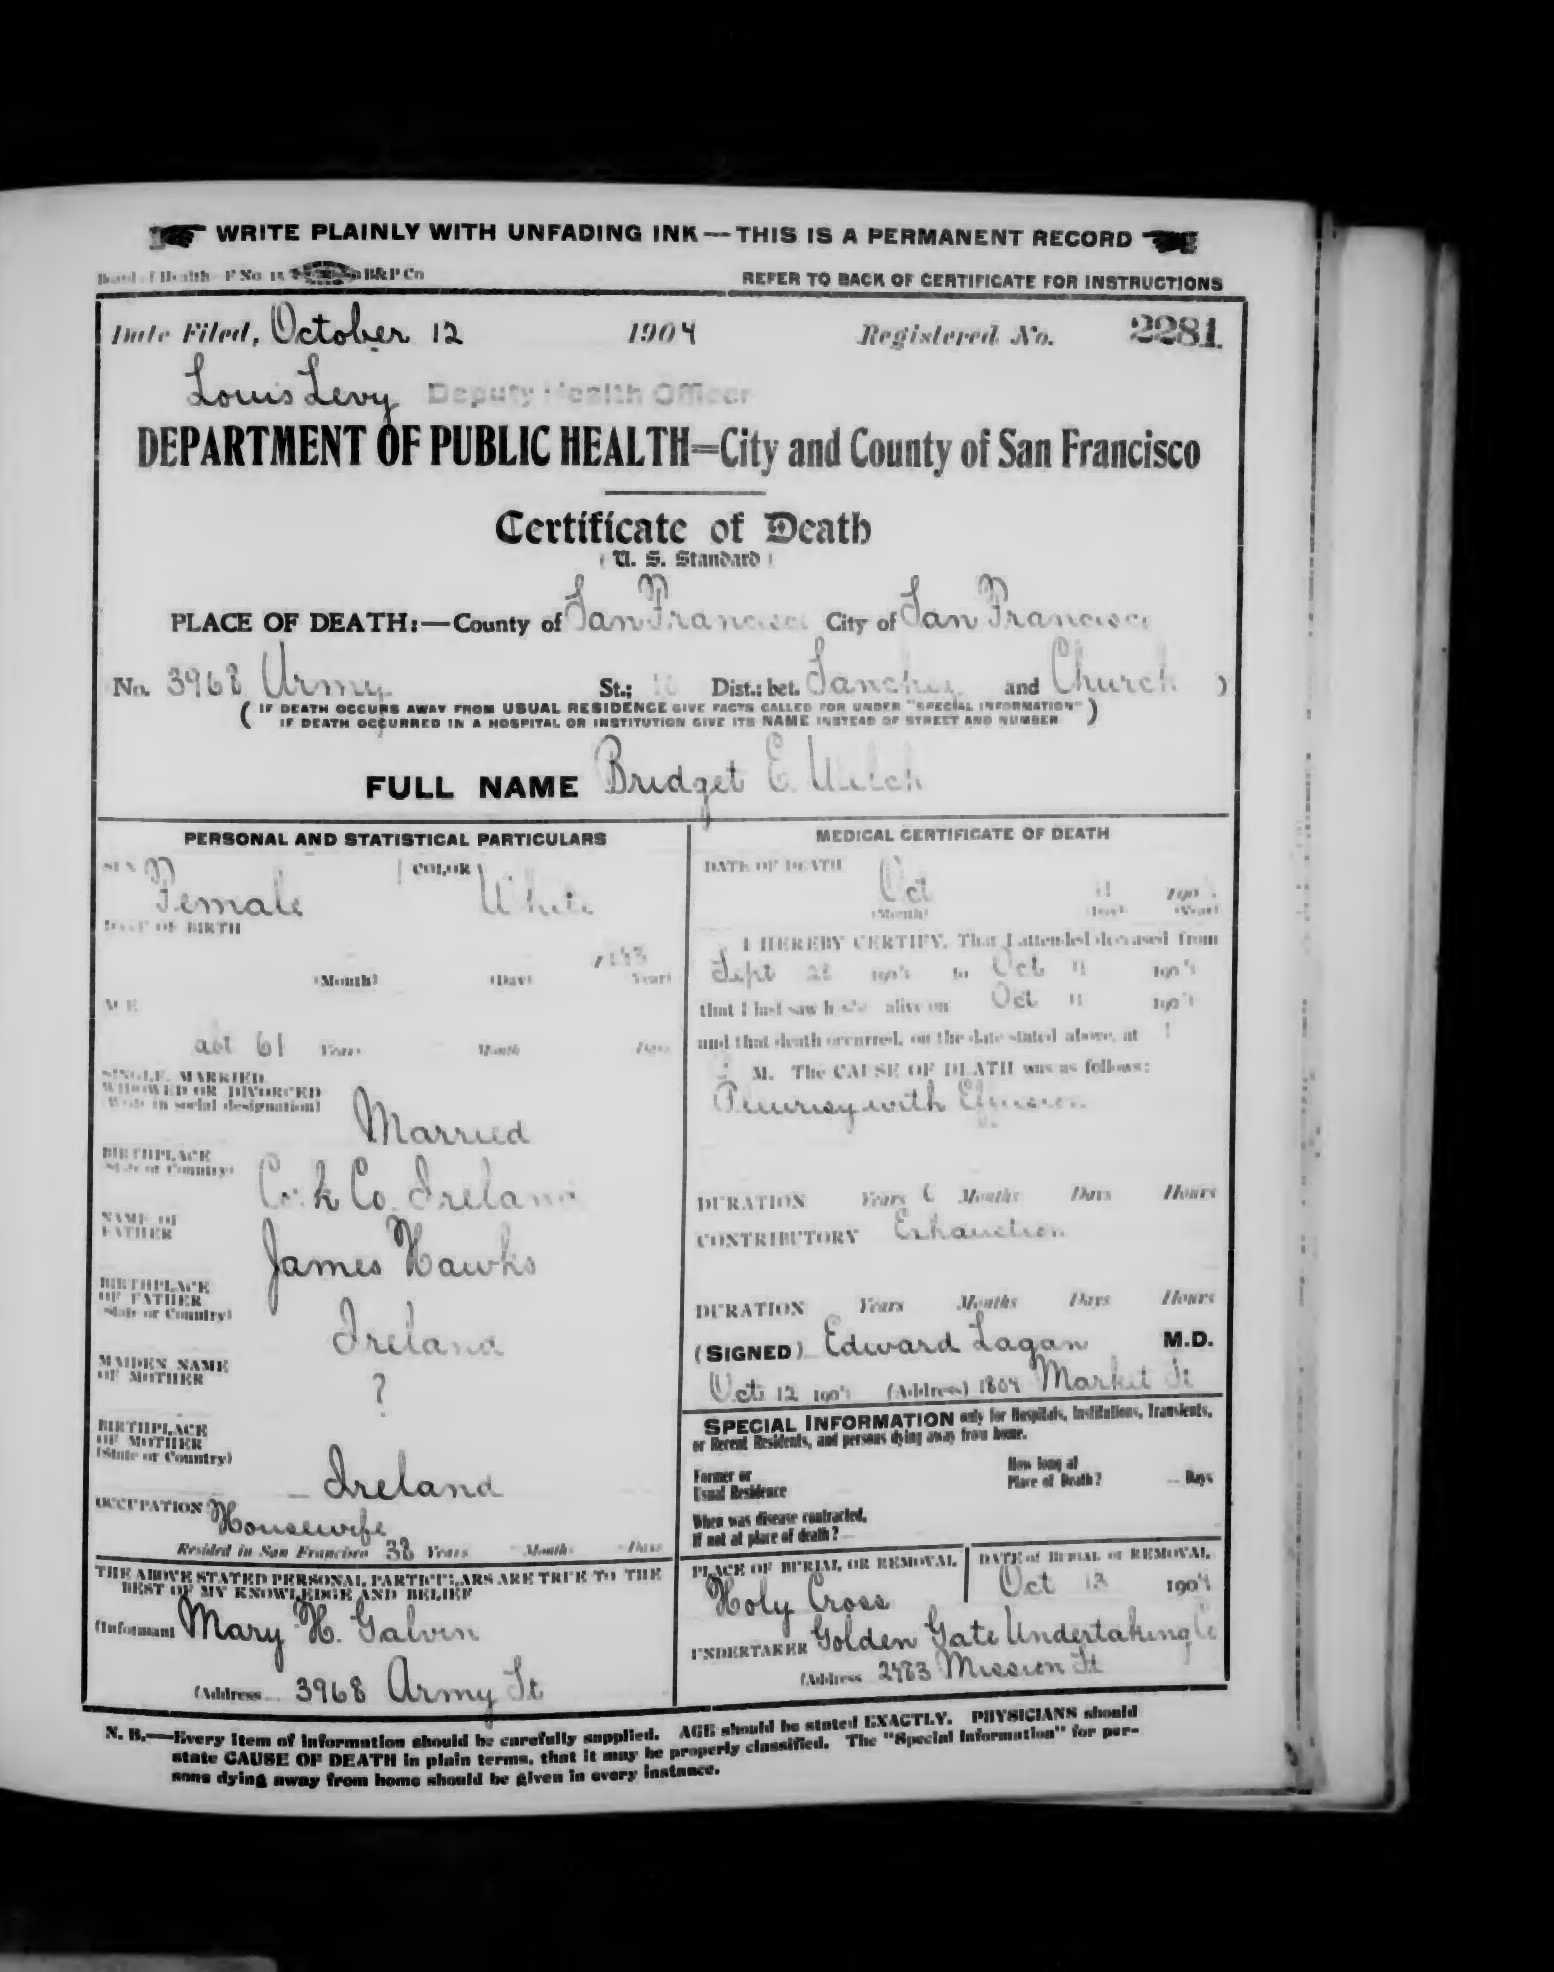 WRITE PLAINLY WITH UNFADING INK — THIS IS A PERMANENT RECORD
Board of Health P No 15 B&P Co
REFER TO BACK OF CERTIFICATE FOR INSTRUCTIONS
Date Filed, October 12 1904 Registered No. 2281
Louis Levy Deputy Health Officer
DEPARTMENT OF PUBLIC HEALTH=City and County of San Francisco
Certificate of Death
( U. S. Standard )
PLACE OF DEATH:—County of San Francisco City of San Francisco
No. 3968 Army St.; Dist.; bet. Sanchez and Church )
( IF DEATH OCCURS AWAY FROM USUAL RESIDENCE GIVE FACTS CALLED FOR UNDER "SPECIAL INFORMATION"
IF DEATH OCCURRED IN A HOSPITAL OR INSTITUTION GIVE ITS NAME INSTEAD OF STREET AND NUMBER )
FULL NAME Bridget E. Welch
PERSONAL AND STATISTICAL PARTICULARS
SEX Female COLOR White
DATE OF BIRTH
(Month) (Day) (Year)
AGE
abt 61 Years Months Days
SINGLE, MARRIED,
WIDOWED OR DIVORCED
(Write in social designation)
Married
BIRTHPLACE
(State or Country)
Cork Co. Ireland
NAME OF
FATHER
James Hawks
BIRTHPLACE
OF FATHER
(State or Country)
Ireland
MAIDEN NAME
OF MOTHER
?
BIRTHPLACE
OF MOTHER
(State or Country)
Ireland
OCCUPATION Housewife
Resided in San Francisco 38 Years Months Days
THE ABOVE STATED PERSONAL PARTICULARS ARE TRUE TO THE
BEST OF MY KNOWLEDGE AND BELIEF
(Informant Mary H. Galvin
(Address 3968 Army St
MEDICAL CERTIFICATE OF DEATH
DATE OF DEATH
Oct 11 190
(Month) (Day) (Year)
I HEREBY CERTIFY, That I attended deceased from
Sept 28 1904 to Oct 11 1904
that I last saw her alive on Oct 11 1904
and that death occurred, on the date stated above, at
M. The CAUSE OF DEATH was as follows:
Pleurisy with Effusion
DURATION Years Months Days Hours
CONTRIBUTORY Exhaustion
DURATION Years Months Days Hours
(SIGNED) Edward Lagan M.D.
Oct 12 1904 (Address) 1804 Market St
SPECIAL INFORMATION only for Hospitals, Institutions, Transients,
or Recent Residents, and persons dying away from home.
Former or
Usual Residence
How long at
Place of Death? Days
When was disease contracted,
If not at place of death?
PLACE OF BURIAL OR REMOVAL
Holy Cross
DATE of BURIAL or REMOVAL
Oct 13 1904
UNDERTAKER Golden Gate Undertaking Co
(Address 2483 Mission St
N. B.—Every item of information should be carefully supplied. AGE should be stated EXACTLY. PHYSICIANS should
state CAUSE OF DEATH in plain terms, that it may be properly classified. The "Special Information" for per-
sons dying away from home should be given in every instance.